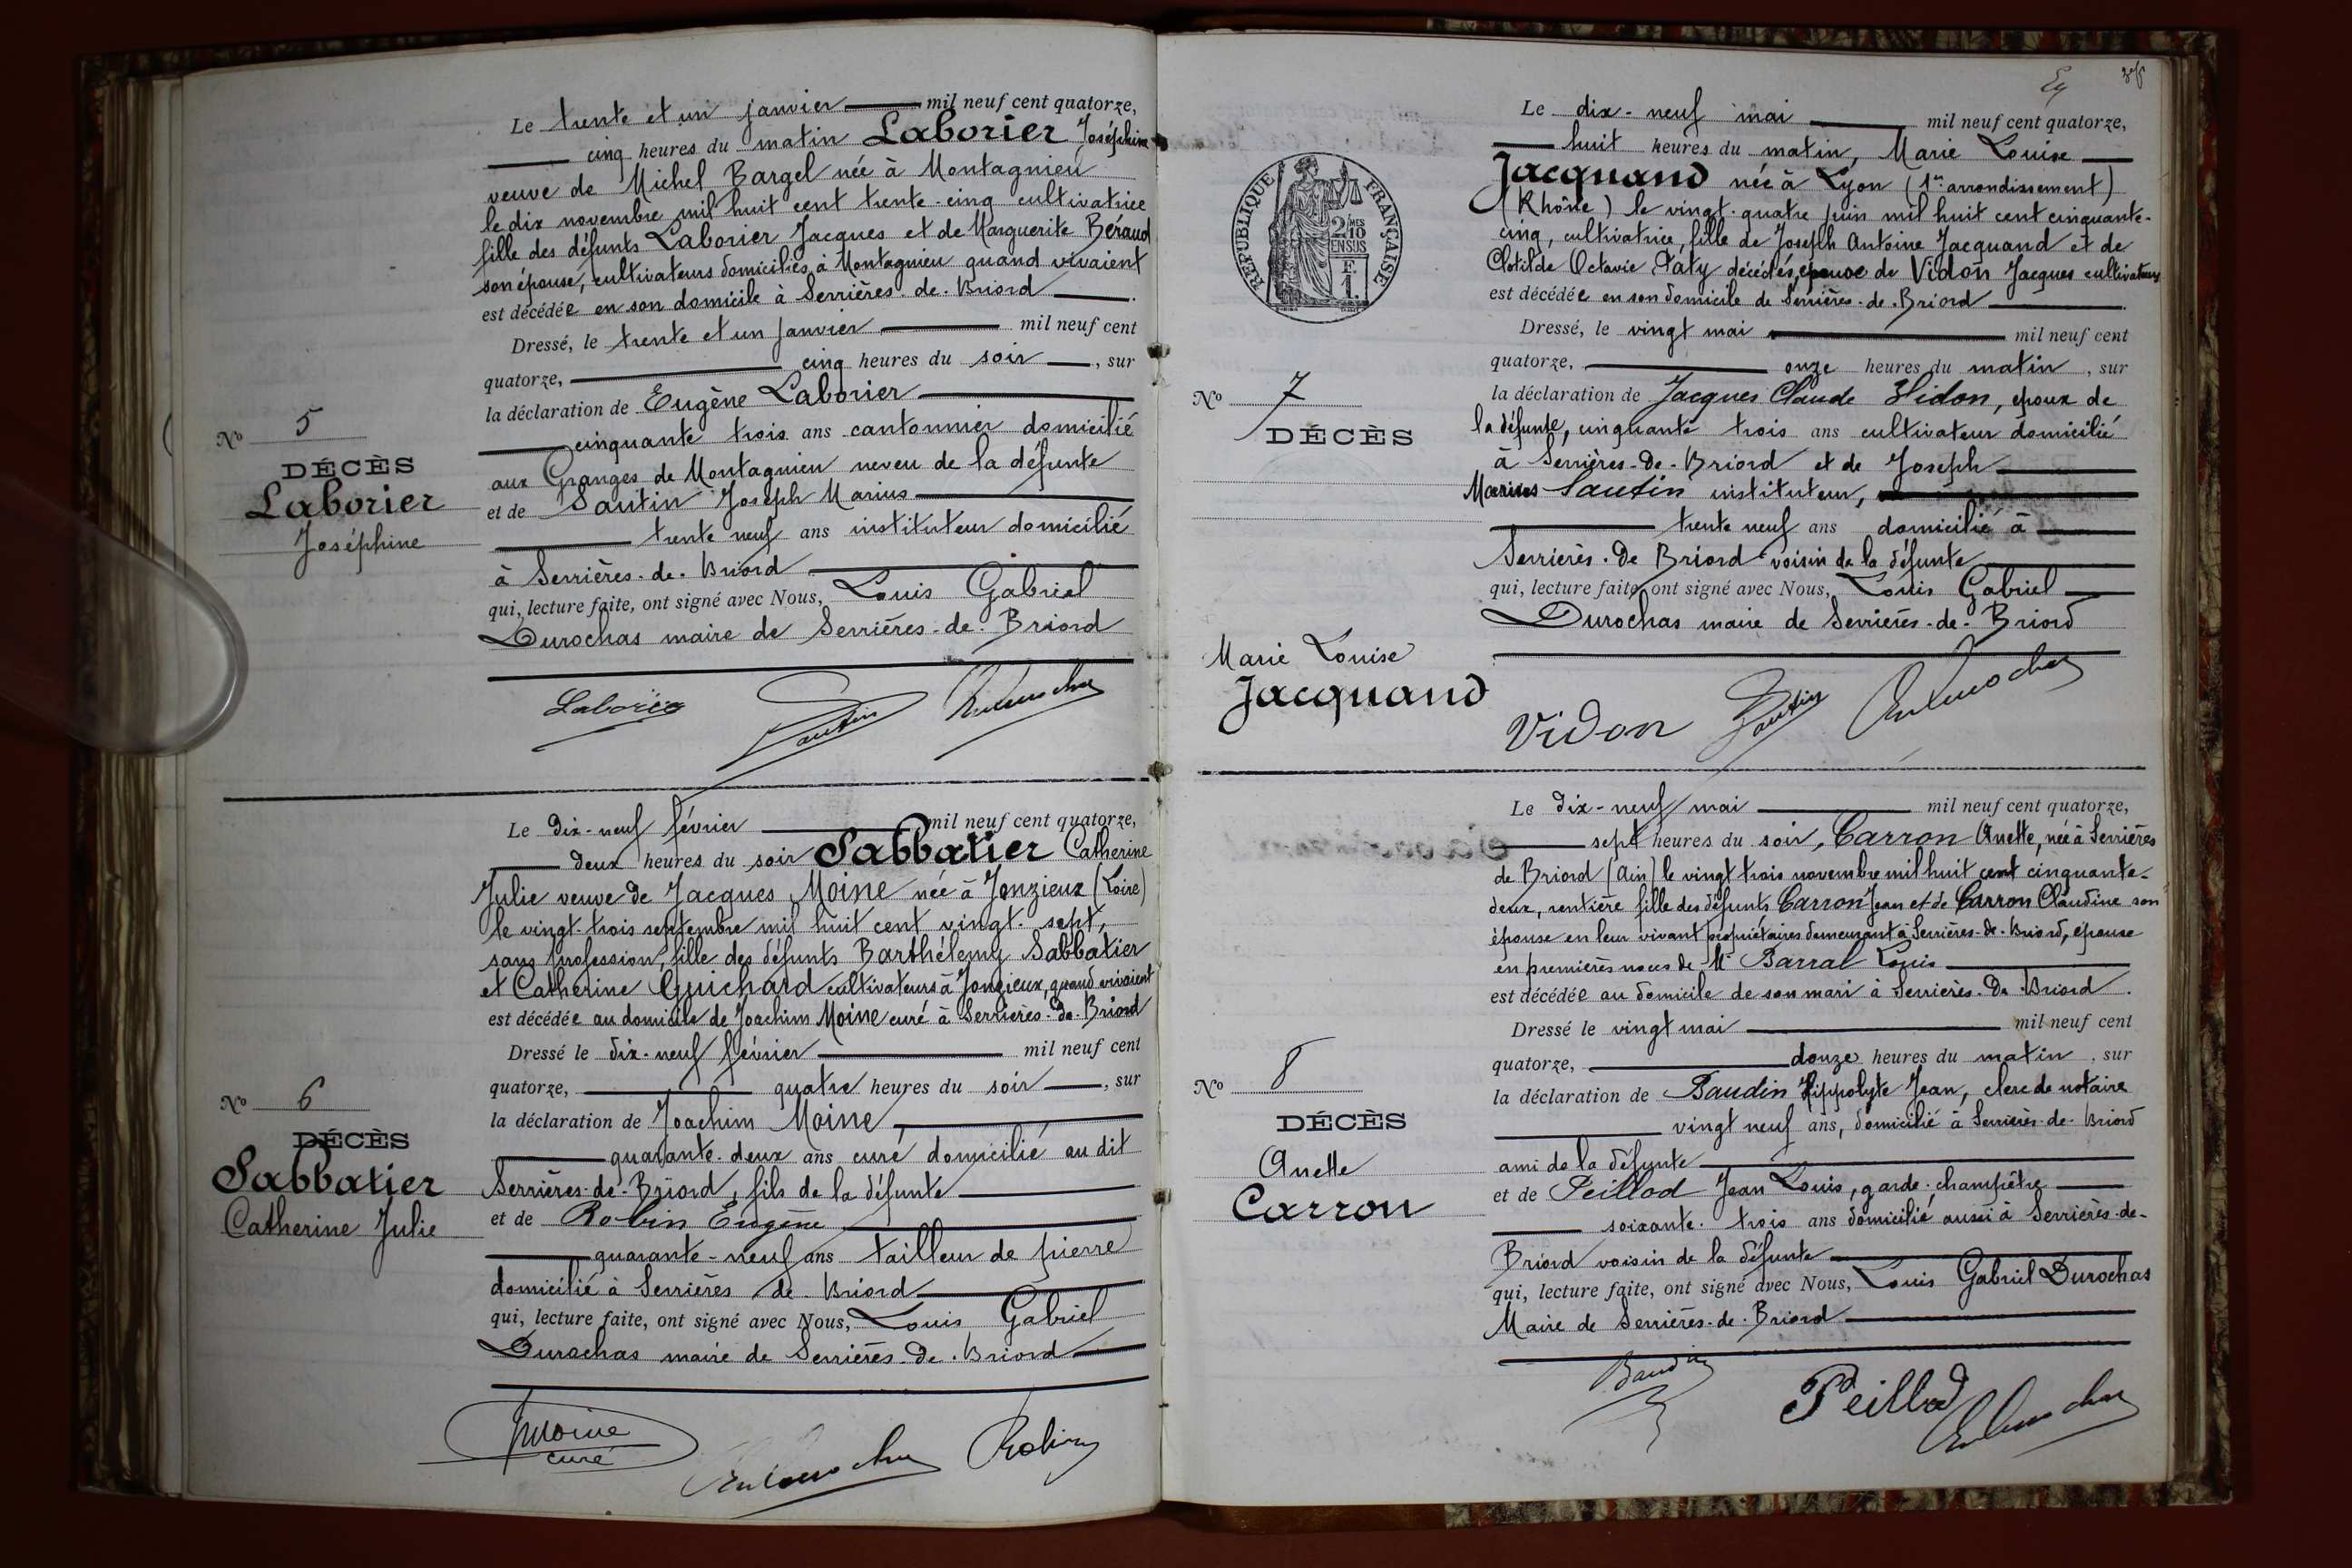 Le trente et un janvier mil neuf cent quatorze,
cinq heures du matin Laborier Joséphine
veuve de Michel Bargel née à Montagnieu
le dix novembre mil huit cent trente-cinq cultivatrice
fille des défunts Laborier Jacques et de Marguerite Béraud
son épouse, cultivateurs domiciliés à Montagnieu quand vivaient
est décédée en son domicile à Serrières-de-Briord
Dressé, le trente et un janvier mil neuf cent
quatorze, cinq heures du soir, sur
la déclaration de Eugène Laborier
cinquante trois ans cantonnier domicilié
aux Granges de Montagnieu neveu de la défunte
et de Santin Joseph Marius
trente neuf ans instituteur domicilié
à Serrières-de-Briord
qui, lecture faite, ont signé avec Nous, Louis Gabriel
Durochas maire de Serrières-de-Briord
No 5
DÉCÈS
Laborier
Joséphine
Laborier Santin Durochas
Le dix-neuf février mil neuf cent quatorze,
deux heures du soir Sabbatier Catherine
Julie veuve de Jacques Moine née à Jonzieux (Loire)
le vingt-trois septembre mil huit cent vingt-sept,
sans profession, fille des défunts Barthélemy Sabbatier
et Catherine Guichard cultivateurs à Jonzieux, quand vivaient
est décédée au domicile de Joachim Moine curé à Serrières-de-Briord
Dressé le dix-neuf février mil neuf cent
quatorze, quatre heures du soir, sur
la déclaration de Joachim Moine,
quarante-deux ans curé domicilié au dit
Serrières-de-Briord, fils de la défunte
et de Robin Eugène
quarante-neuf ans tailleur de pierre
domicilié à Serrières de Briord
qui, lecture faite, ont signé avec Nous, Louis Gabriel
Durochas maire de Serrières-de-Briord
No 6
DÉCÈS
Sabbatier
Catherine Julie
Moine
curé
Durochas Robin
RÉPUBLIQUE FRANÇAISE
2/10
EN SUS
F.
1.
Le dix-neuf mai mil neuf cent quatorze,
huit heures du matin, Marie Louise
Jacquand née à Lyon (1er arrondissement)
(Rhône) le vingt-quatre juin mil huit cent cinquante-
cinq, cultivatrice, fille de Joseph Antoine Jacquand et de
Clotilde Octavie Paty décédés, épouse de Vidon Jacques cultivateur
est décédée en son domicile de Serrières-de-Briord
Dressé, le vingt mai mil neuf cent
quatorze, onze heures du matin, sur
la déclaration de Jacques Claude Vidon, époux de
la défunte, cinquante trois ans cultivateur domicilié
à Serrières-de-Briord et de Joseph
Marius Santin instituteur,
trente neuf ans domicilié à
Serrières-de Briord voisin de la défunte
qui, lecture faite, ont signé avec Nous, Louis Gabriel
Durochas maire de Serrières-de-Briord
No 7
DÉCÈS
Marie Louise
Jacquand
Vidon Santin Durochas
Le dix-neuf mai mil neuf cent quatorze,
sept heures du soir, Carron Anette, née à Serrières
de Briord (Ain) le vingt trois novembre mil huit cent cinquante-
deux, rentière fille des défunts Carron Jean et de Carron Claudine son
épouse en leur vivant propriétaires demeurant à Serrières-de-Briord, épouse
en premières noces de Mr Barral Louis
est décédée au domicile de son mari à Serrières-de-Briord.
Dressé le vingt mai mil neuf cent
quatorze, douze heures du matin, sur
la déclaration de Baudin Hippolyte Jean, clerc de notaire
vingt neuf ans, domicilié à Serrières-de-Briord
ami de la défunte
et de Peillod Jean Louis, garde-champêtre
soixante-trois ans domicilié aussi à Serrières-de-
Briord voisin de la défunte
qui, lecture faite, ont signé avec Nous, Louis Gabriel Durochas
Maire de Serrières-de-Briord
No 8
DÉCÈS
Anette
Carron
Baudin Peillod Durochas